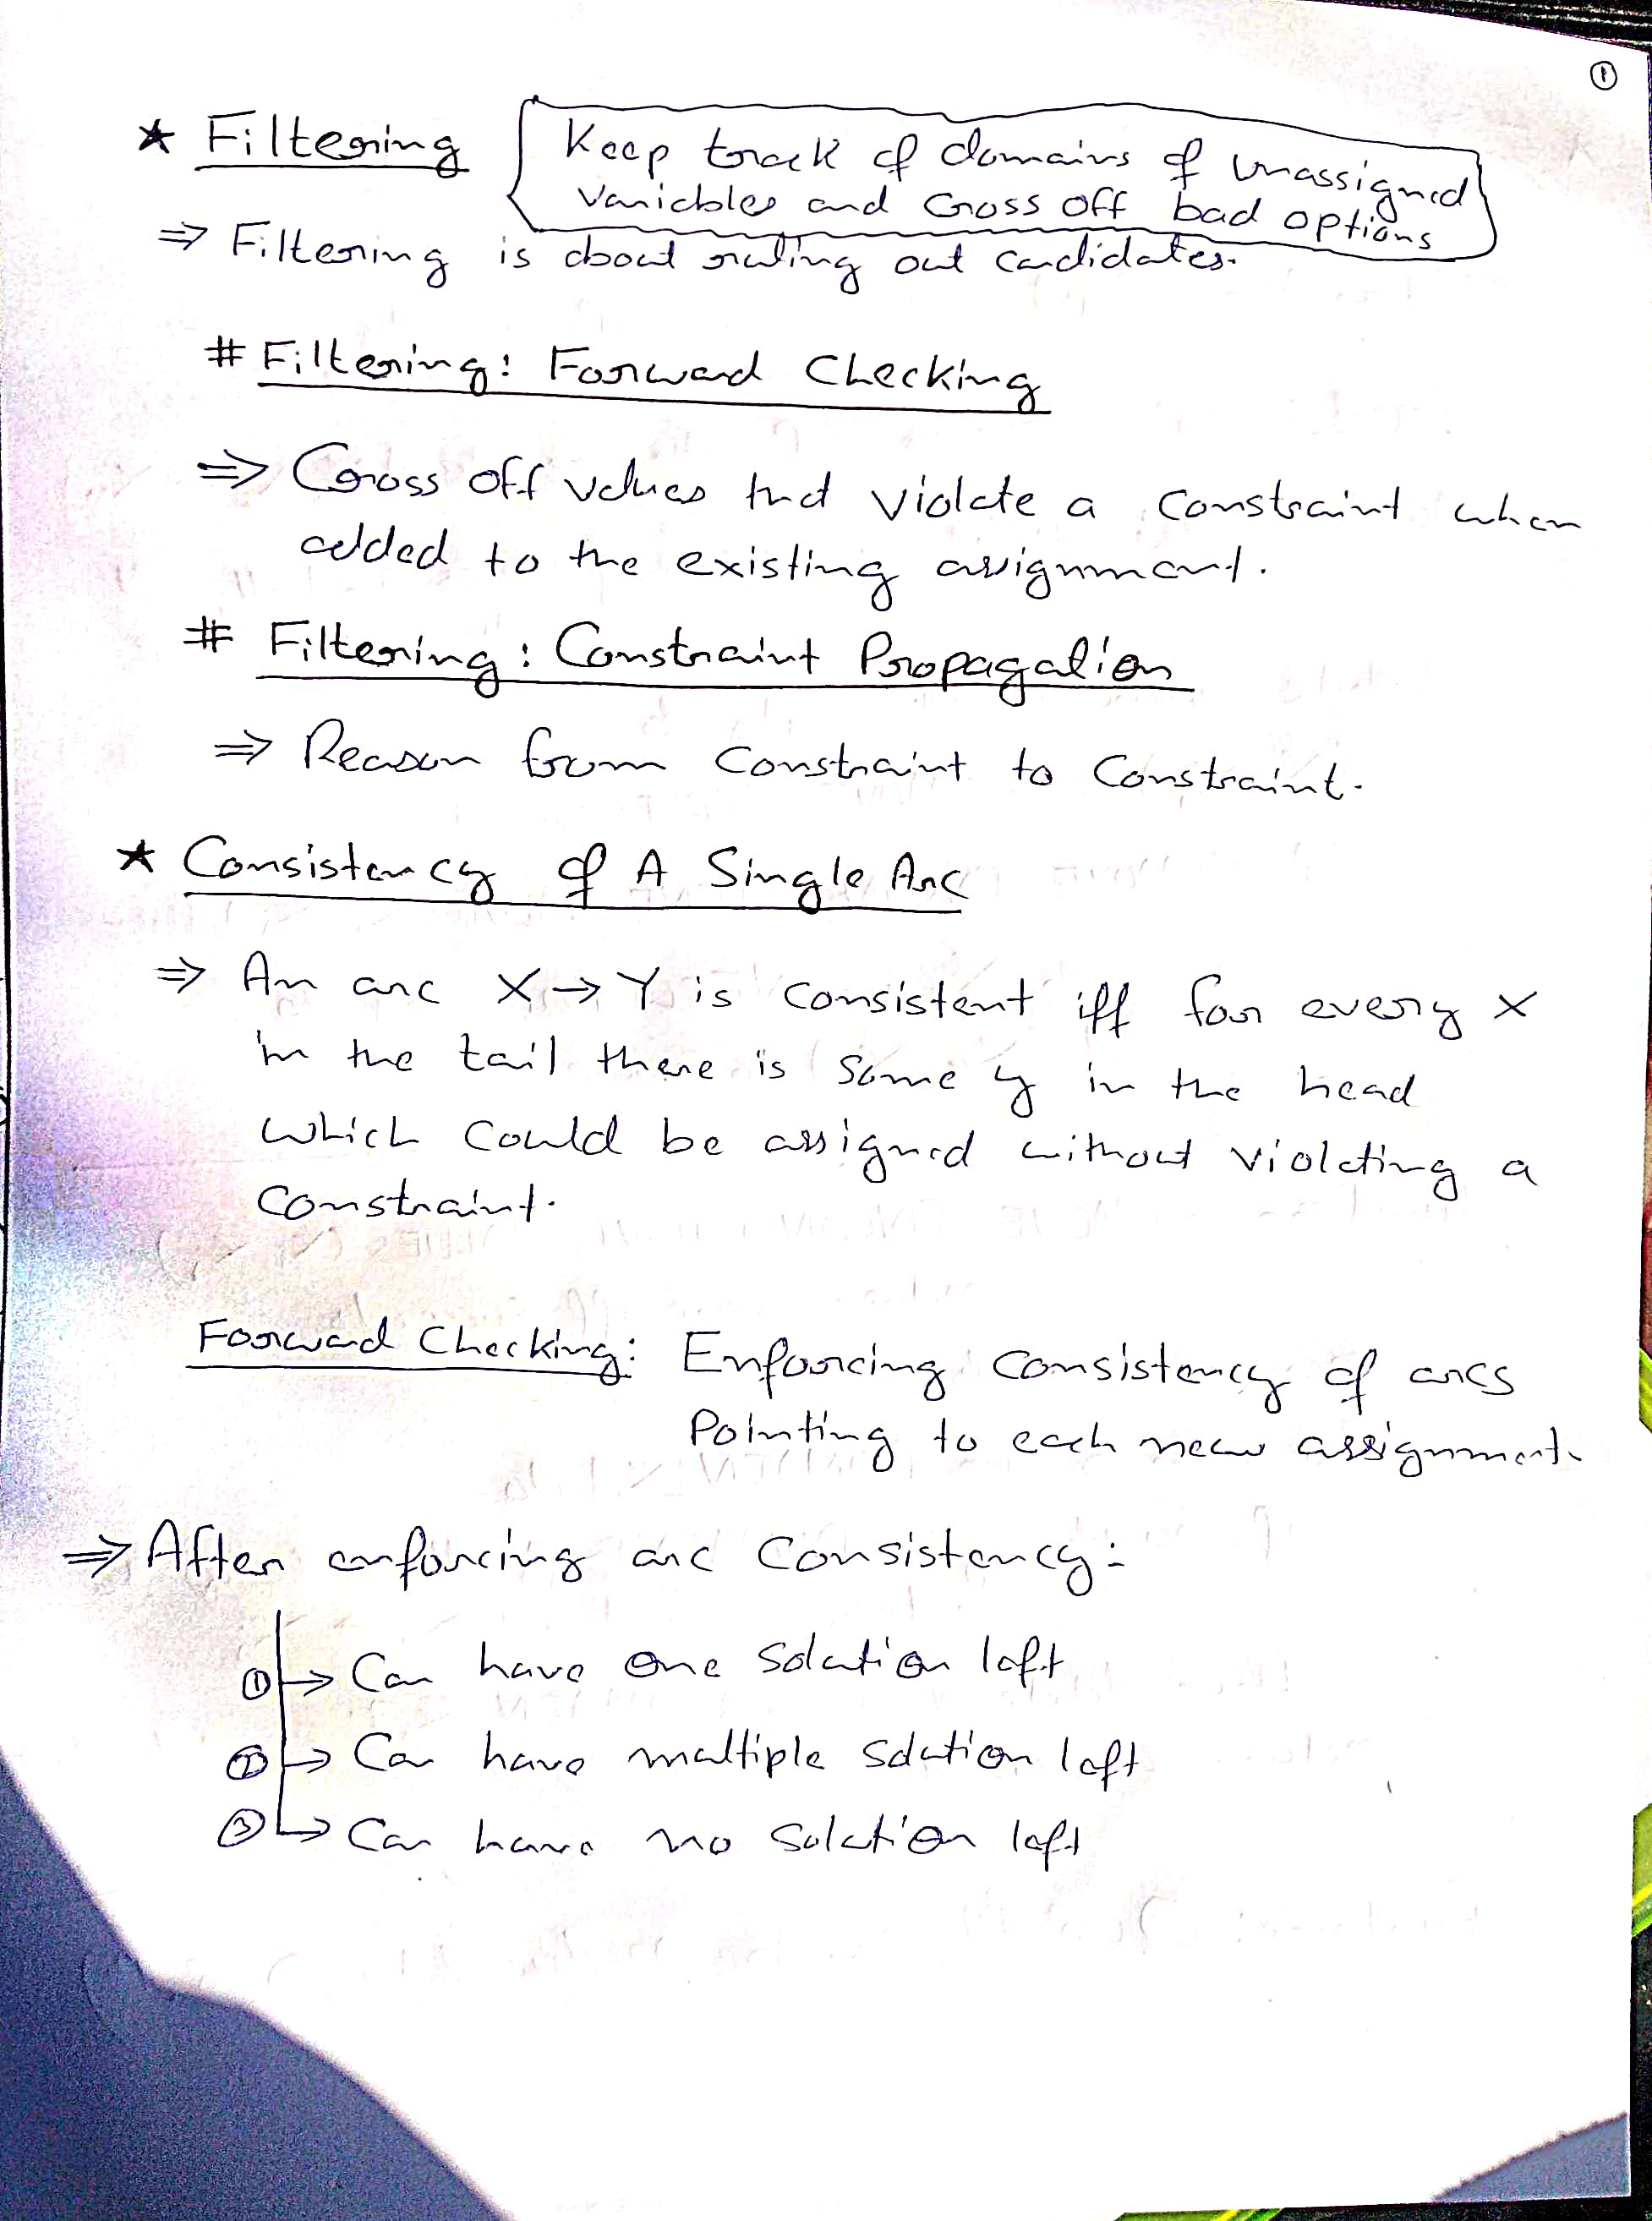 ①
★ Filtering
Keep track of domains of unassigned
variables and cross off bad options
⇒ Filtering is about ruling out candidates.
# Filtering: Forward Checking
⇒ Cross off values that violate a constraint when
added to the existing assignment.
# Filtering: Constraint Propagation
⇒ Reason from constraint to constraint.
★ Consistency of A Single Arc
⇒ An arc X → Y is consistent iff for every x
in the tail there is some y in the head
which could be assigned without violating a
constraint.
Forward Checking: Enforcing consistency of arcs
Pointing to each new assignment.
⇒ After enforcing arc consistency:
① → Can have one solution left
② → Can have multiple solution left
③ → Can have no solution left